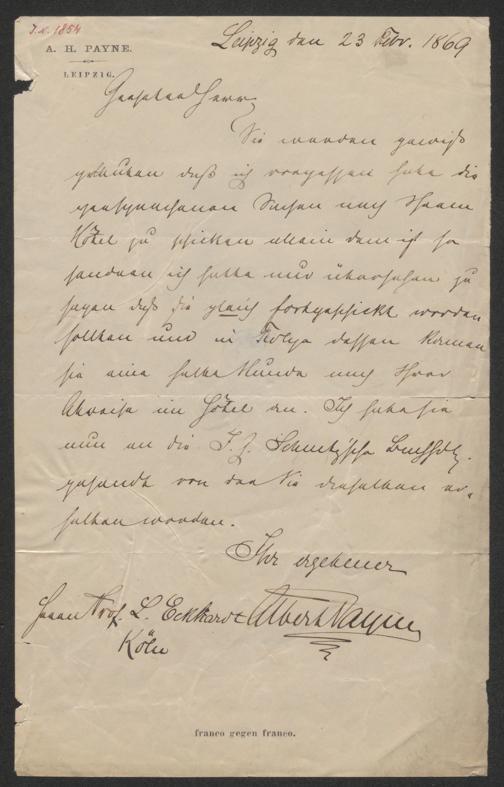 J.N. 1854
A. H. PAYNE.
LEIPZIG.
Leipzig den 23 Febr. 1869
Geehrter Herr
Sie werden gewiß
glauben daß ich vergessen habe die
versprochenen Sachen nach Ihrem
Hôtel zu schicken allein dem ist so
sondern ich hatte nur übersehen zu
sagen daß sie gleich fortgeschickt werden
sollten und in Folge dessen kamen
sie eine halbe Stunde nach Ihrer
Abreise im Hôtel an. Ich habe sie
nun an die Buchhdlg.
gesandt von der Sie dieselben er-
halten werden.
Ihr ergebener
Albert Payne
Herrn Prof. L. Eckhardt
Köln
franco gegen franco.